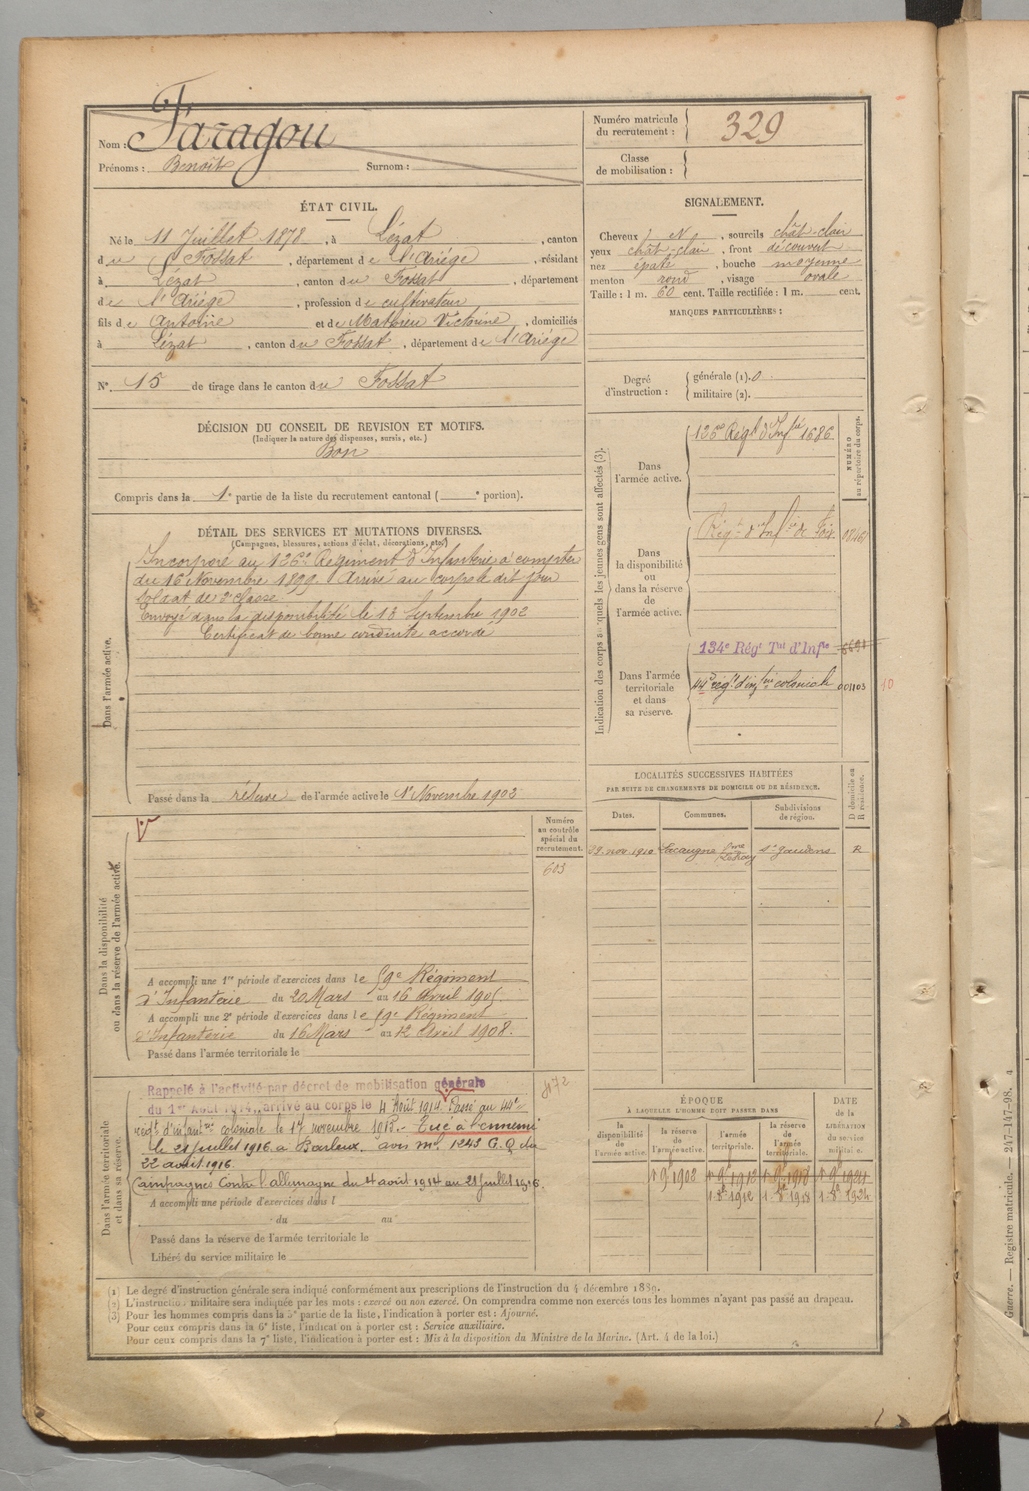 Nom : Faragou
Prénoms : Benoît Surnom :
Numéro matricule du recrutement : 329
Classe de mobilisation :
ÉTAT CIVIL.
Né le 11 Juillet 1878, à Lézat, canton
du Fossat, département de l'Ariège, résidant
à Lézat, canton du Fossat, département
de l'Ariège, profession de cultivateur
fils de Antoine et de Mathieu Victorine, domiciliés
à Lézat, canton du Fossat, département de l'Ariège
N°. 15 de tirage dans le canton du Fossat
SIGNALEMENT.
Cheveux N, sourcils chât-clair
yeux chât-clair, front découvert
nez épaté, bouche moyenne
menton rond, visage ovale
Taille : 1 m. 60 cent. Taille rectifiée : 1 m. cent.
MARQUES PARTICULIÈRES :
Degré d'instruction : générale (1). 0
militaire (2).
DÉCISION DU CONSEIL DE REVISION ET MOTIFS.
(Indiquer la nature des dispenses, sursis, etc.)
Bon
Compris dans la 1e partie de la liste du recrutement cantonal ( e portion).
DÉTAIL DES SERVICES ET MUTATIONS DIVERSES.
(Campagnes, blessures, actions d'éclat, décorations, etc.)
Dans l'armée active.
Incorporé au 126e Régiment d'Infanterie à compter
du 16 Novembre 1899. Arrivé au corps le dit jour
Soldat de 2e classe.
Envoyé dans la disponibilité le 13 Septembre 1902
Certificat de bonne conduite accordé
Passé dans la réserve de l'armée active le 1er Novembre 1902
Indication des corps auxquels les jeunes gens sont affectés (3).
NUMÉRO au répertoire du corps.
Dans l'armée active.
126e Régt d'Infie 1686
Dans la disponibilité ou dans la réserve de l'armée active.
Régt d'Infie de Foix
Dans l'armée territoriale et dans sa réserve.
134e Régt Tal d'Infie
44e régt d'infie coloniale 001103 10
LOCALITÉS SUCCESSIVES HABITÉES
PAR SUITE DE CHANGEMENTS DE DOMICILE OU DE RÉSIDENCE.
Dates. Communes. Subdivisions de région. D domicile ou R résidence.
29 nov. 1910 Lacaugne St Gaudens R
Dans la disponibilité ou dans la réserve de l'armée active.
Numéro au contrôle spécial du recrutement.
603
A accompli une 1re période d'exercices dans le 59e Régiment
d'Infanterie du 20 Mars au 16 Avril 1905.
A accompli une 2e période d'exercices dans le 59e Régiment
d'Infanterie du 16 Mars au 12 Avril 1908.
Passé dans l'armée territoriale le
Dans l'armée territoriale et dans sa réserve.
Rappelé à l'activité par décret de mobilisation générale
du 1er Août 1914, arrivé au corps le 4 Août 1914. Passé au 44e
régt d'infantie coloniale le 17 novembre 1915. Tué à l'ennemi
le 21 juillet 1916 à Barleux. avis ml. 1243 G.Q du
22 août 1916.
Campagnes Contre l'allemagne du 4 août 1914 au 21 juillet 1916.
A accompli une période d'exercices dans l
du au
Passé dans la réserve de l'armée territoriale le
Libéré du service militaire le
ÉPOQUE
À LAQUELLE L'HOMME DOIT PASSER DANS
la disponibilité de l'armée active. la réserve de l'armée active. l'armée territoriale. la réserve de l'armée territoriale.
DATE de la LIBÉRATION du service militaire.
1 9e 1902
(1) Le degré d'instruction générale sera indiqué conformément aux prescriptions de l'instruction du 4 décembre 1889.
(2) L'instruction militaire sera indiquée par les mots : exercé ou non exercé. On comprendra comme non exercés tous les hommes n'ayant pas passé au drapeau.
(3) Pour les hommes compris dans la 5e partie de la liste, l'indication à porter est : Ajourné.
Pour ceux compris dans la 6e liste, l'indication à porter est : Service auxiliaire.
Pour ceux compris dans la 7e liste, l'indication à porter est : Mis à la disposition du Ministre de la Marine. (Art. 4 de la loi.)
Guerre. — Registre matricule. — 247-147-98. 4